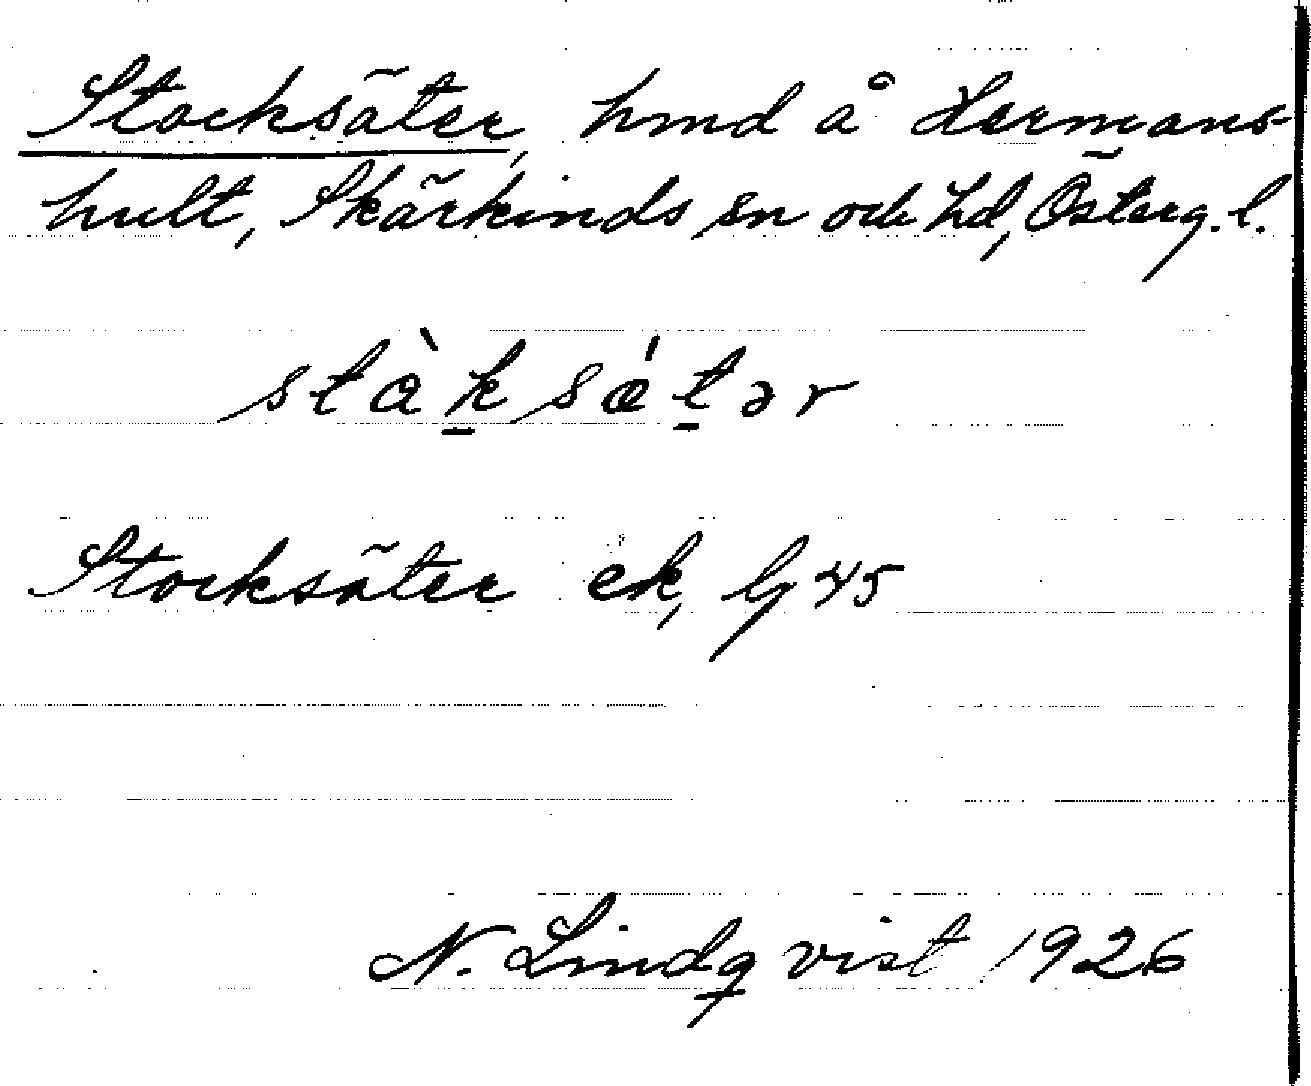 Stocksäter, hmd å Hermans-
hult, Skärkinds sn och hd, Österg. l.
stàksǽtər
Stocksäter ek, bl 45
N. Lindqvist 1926